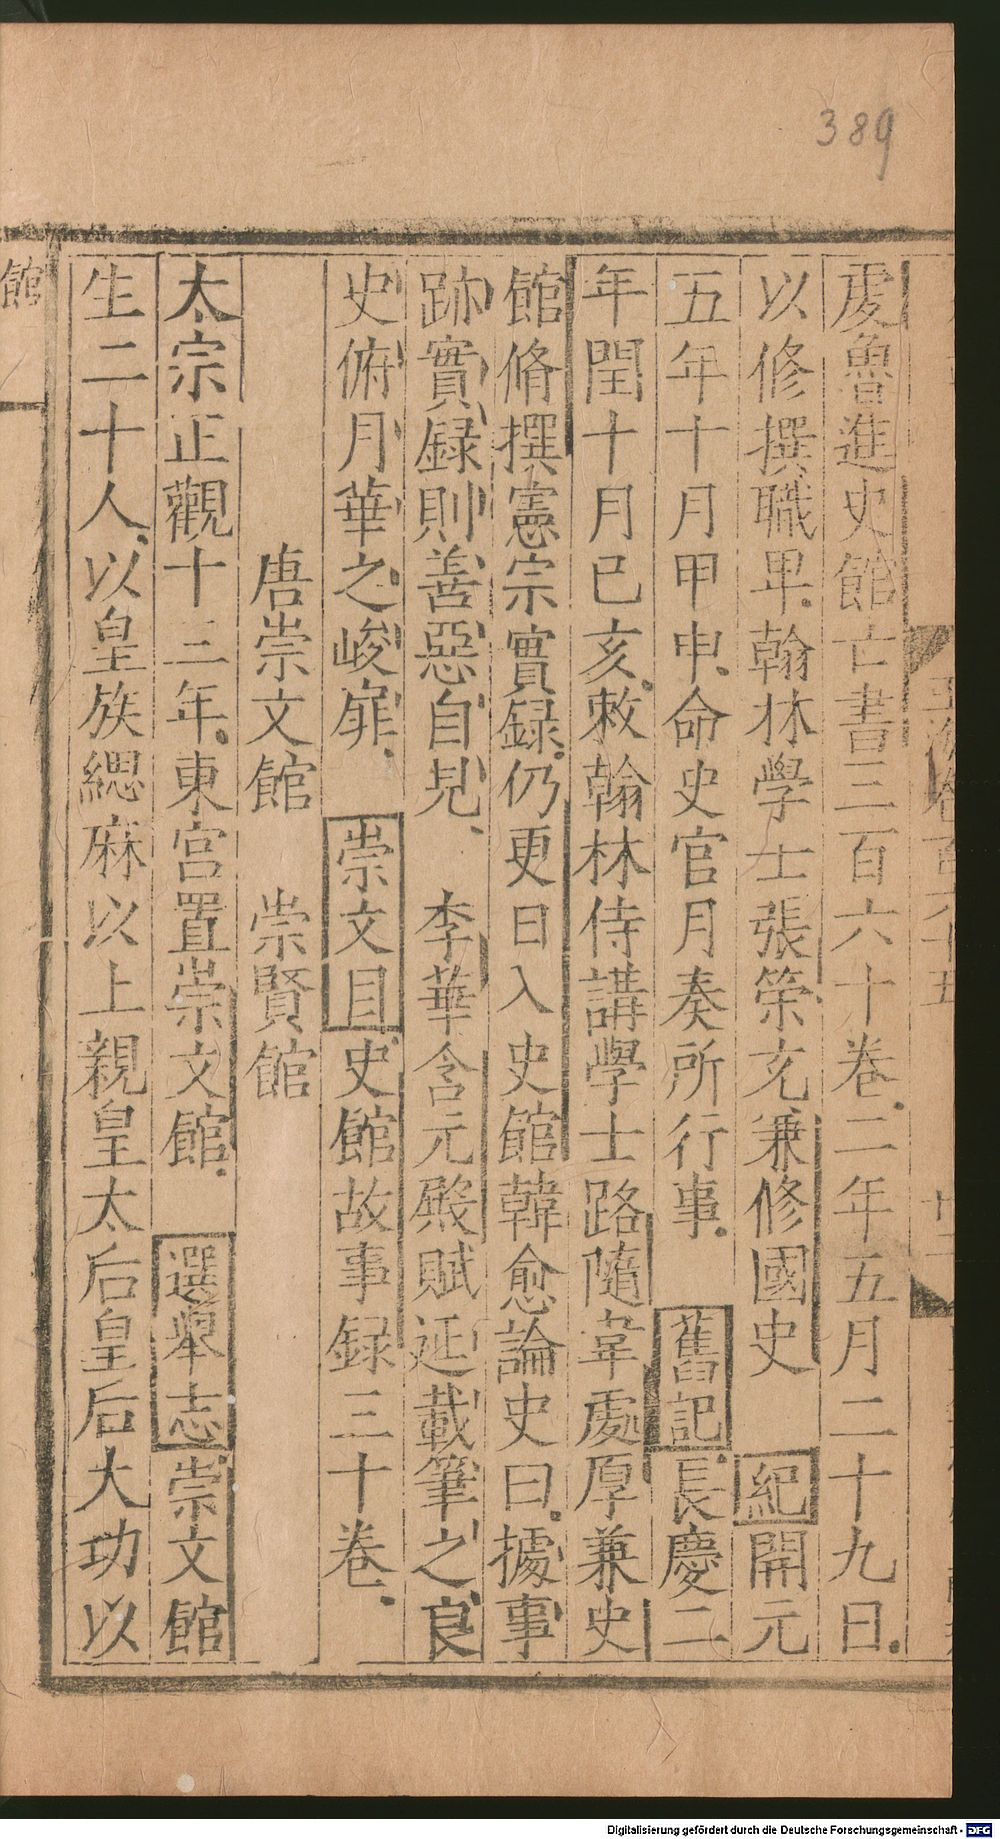 389
處魯進史館亡書三百六十卷二年五月二十九日
以修撰職畢翰林學士張榮充兼修國史 紀開元
五年十月甲申命史官月奏所行事 舊記長慶二
年閏十月已亥敕翰林侍講學士路隨韋處厚兼史
館脩撰憲宗實録仍更日入史館韓愈論史曰據事
跡實録則善惡自見 李華含元殿賦延載筆之良
史俯月華之峻扉 崇文目史館故事録三十卷
唐崇文館 崇賢館
太宗正觀十三年東宮置崇文館 選舉志崇文館
生二十人以皇族緦麻以上親皇太后皇后大功以
館
Digitalisierung gefördert durch die Deutsche Forschungsgemeinschaft - DFG